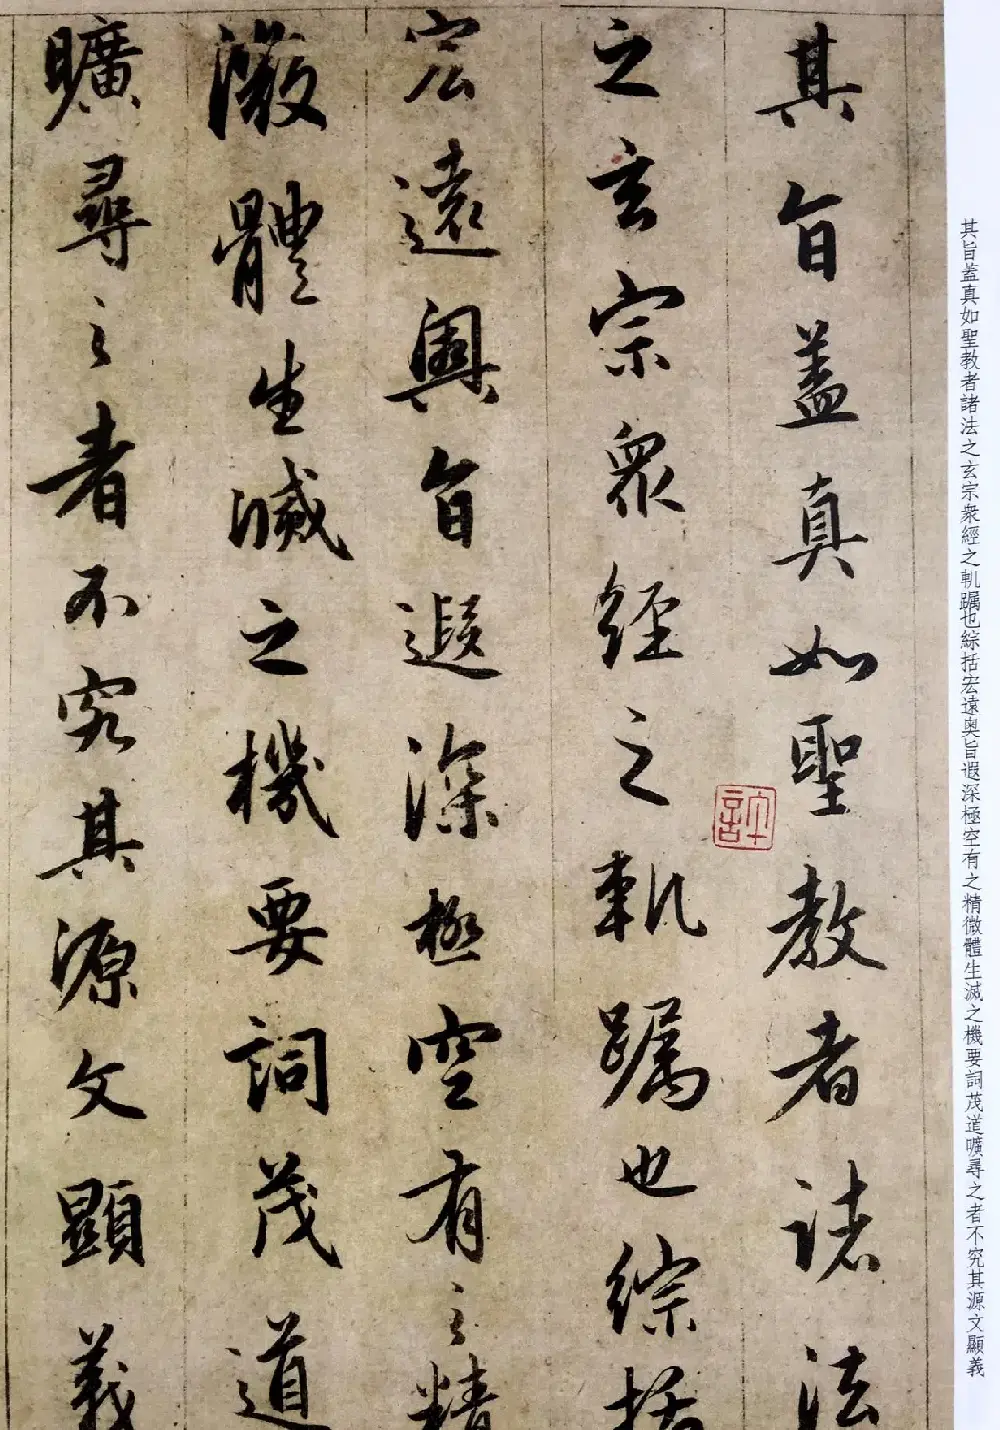 其旨蓋真如聖教者諸法
之玄宗衆經之軌躅也綜括
宏遠奧旨遐深極空有之精
微體生滅之機要詞茂道
曠尋之者不究其源文顯義
許
其旨蓋真如聖教者諸法之玄宗衆經之軌躅也綜括宏遠奥旨遐深極空有之精微體生滅之機要詞茂道曠尋之者不究其源文顯義